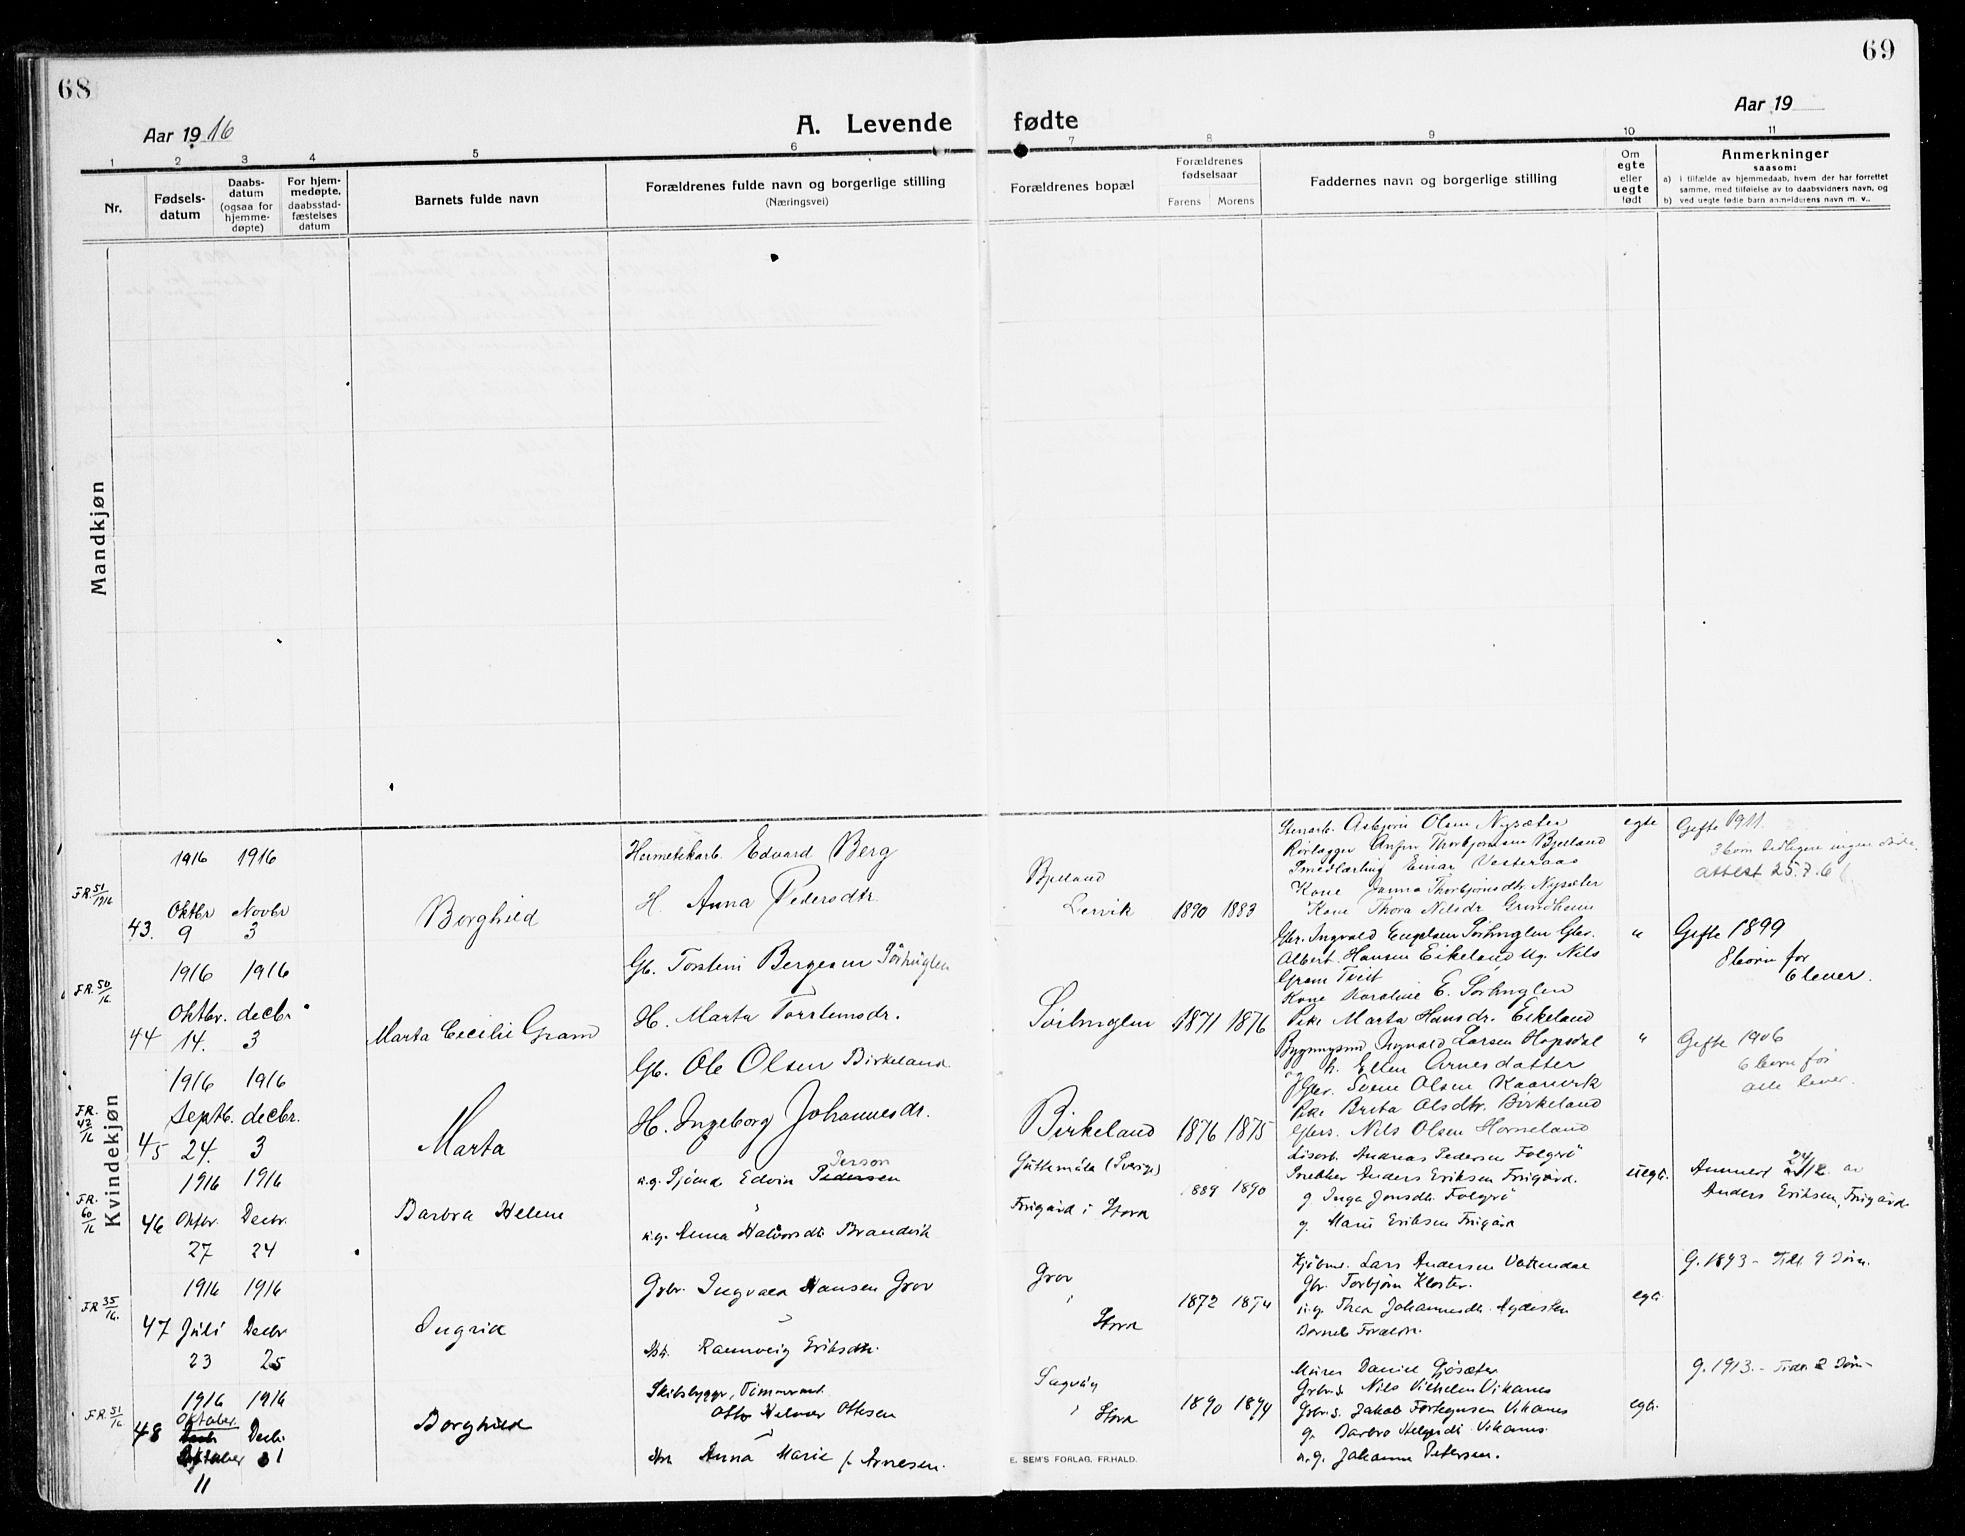 68
69
Aar 1916
A. Levende fødte
Aar 19
1 2 3 4 5 6 7 8 9 10 11
Nr.
Fødsels-
datum
Daabs-
datum
(ogsaa for
hjemme-
døpte)
For hjem-
medøpte,
daabsstad-
fæstelses
datum
Barnets fulde navn
Forældrenes fulde navn og borgerlige stilling
(Næringsvei)
Forældrenes bopæl
Forældrenes
fødselsaar
Farens Morens
Faddernes navn og borgerlige stilling
Om
egte
eller
uegte
født
Anmerkninger
saasom:
a) i tilfælde av hjemmedaab, hvem der har forrettet
samme, med tilføielse av to daabsvidners navn, og
b) ved uegte fødte barn anmelderens navn m. v..
Mandkjøn
Kvindekjøn
FR. 51/1916
43.
1916 1916
Oktbr Novbr
9 3
Borghild
Hermetikarb. Edvard Berg
H. Anna Pedersdtr.
Bjelland
Lervik
1890 1883
Stenarb. Asbjørn Olsen Nysæter
Rørlægger Anfin Thorbjørnsen Bjelland
Smedlærling Einar Vesteraas
Kone Janna Thorbjørnsdtr Nysæter
Kone Thora Nilsdr Grindheim
egte
Gifte 1911.
attest 25.7.6
FR. 50/16.
44
1916 1916
Oktbr. decbr
14. 3
Marta Cecilie Gram
Gb. Torstein Bergesen Sørhuglen
H. Marta Torsteinsdr.
Sørhuglen
1871 1876
Gbr. Ingvald Engelsen Sørhuglen Gbr.
Albert Hansen Eikeland Ug. Nils
Gram Tveit
Kone Karoline E. Sørhuglen
Pike Marta Hansdr. Eikeland
"
Gifte 1899
8 born før
6 lever.
FR. 43/16
45
1916 1916
Septb. decbr.
24. 3
Marta
Gb. Ole Olsen Birkeland
H. Ingeborg Johannesdr.
Birkeland
1876 1875
Larsen Hopsdal
h. Ellen Arnesdatter
Gbr. Svein Olsen Kaarevik
Pike Brita Olsdtr. Birkeland
Gbr. Nils Olsen Horneland
"
Gifte 1906
6 born før
alle lever.
FR. 60/16
46
1916 1916
Oktbr. Decbr.
27 24
Barbra Helene
u.g. Sjömd Edvin Pedersen
Person
u.g. Anna Halvorsdtr Brandvik
Guttemåla (Sverige)
Frugård i Stord
1889 1890
Andreas Pedersen Folgerö
Snekker Anders Eriksen Frugård.
g Inga Jonsdtr. Folgerö
g. Marie Eriksen Frugård
uegte
Anmeld 24/12 av
Anders Eriksen, Frugård.
FR 35/16.
47
1916 1916
Juli Decbr
23 25
Ingrid
Grbr. Ingvald Hansen Grov
Rannveig Eriksdtr.
Grov
Stord
1872 1874
Kjöbm. Lars Andersen Valvatne
Gbr. Torbjørn Kloster.
u.g. Thea Johannesdtr. Agdesten
Barnets Foreldre.
egte
G. 1893 - Tidl 9 Börn.
FR. 51/16
48
1916 1916
Oktober
Decbr Decbr
Oktober 31
11
Borghild
Skibsbygger, Tömmermd.
Otto Helmer Ottesen
Anna Marie f. Arnesen.
Sagvåg
Stord
1890 1894
Murer Daniel Gjösæter
Grbr.s. Nils Vilhelm Vikanes
Grbr.s. Jakob Vikanes
g. Barbro Helgesdtr Vikanes.
u.g. Johanne Petersen.
egte
g. 1913. - Tidl 2 Börn
E. SEM'S FORLAG, FR.HALD.